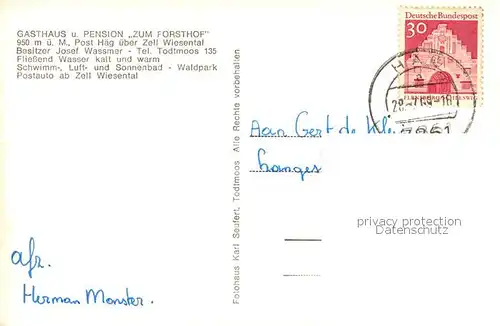 GASTHAUS u. PENSION „ZUM FORSTHOF"
950 m ü. M., Post Häg über Zell Wiesental
Besitzer Josef Wassmer - Tel. Todtmoos 135
Fließend Wasser kalt und warm
Schwimm-, Luft- und Sonnenbad - Waldpark
Postauto ab Zell Wiesental
Deutsche Bundespost
30
HÄG
FLENSBURG
28.-7.69-18
7861
Aan Gert de
Langes
privacy protection
Ansichtskartenversand.com
afz.
Herman Monster.
Fotohaus Karl Seufert, Todtmoos Alle Rechte vorbehalten